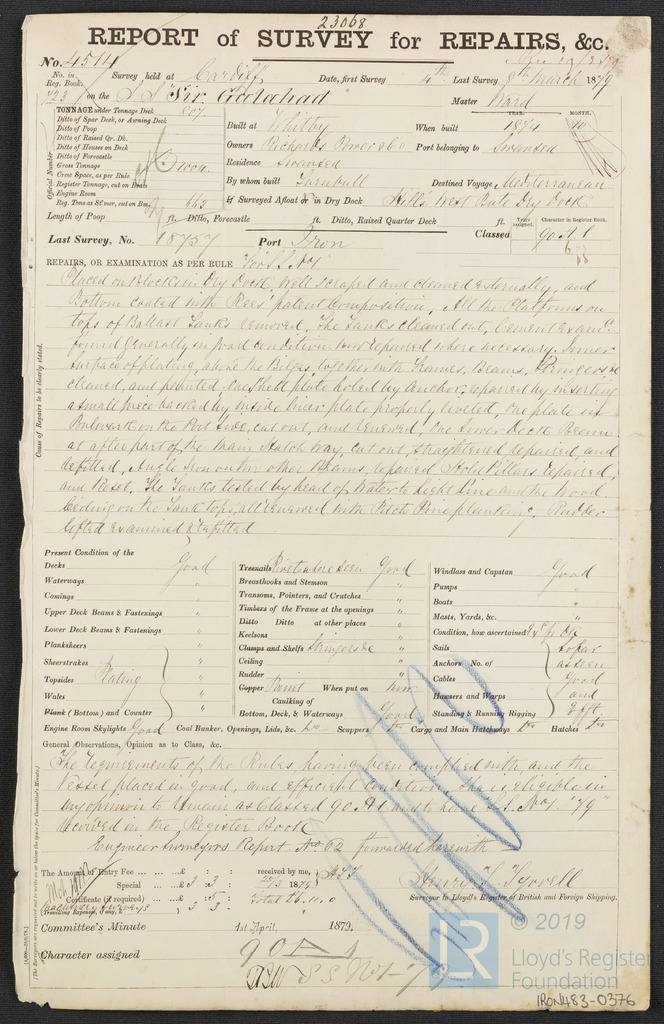 23068
REPORT of SURVEY for REPAIRS, &c.
No. 4514
No. in Reg. Book. 723
Survey held at Cardiff Date, first Survey 4th Last Survey 8th March 1879
on the S.S. "Sir Galahad" Master Ward
TONNAGE under Tonnage Deck 807
Ditto of Spar Deck, or Awning Deck
Ditto of Poop
Ditto of Raised Qr. Dk.
Ditto of Houses on Deck
Ditto of Forecastle
Gross Tonnage 1004
Crew Space, as per Rule
Register Tonnage, cut on Beam
Engine Room
Reg. Tons as St'mer, cut on Bm. 663
Official Number
Built at Whitby When built YEAR. 1874 MONTH. 10
Owners Richards Power & Co Port belonging to Swansea
Residence Swansea
By whom built Turnbull Destined Voyage Mediterranean
If Surveyed Afloat or in Dry Dock Hill's West Bute Dry Dock
Length of Poop ft. Ditto, Forecastle ft. Ditto, Raised Quarter Deck ft.
Years assigned. Character in Register Book.
Last Survey, No. 18757 Port Iron Classed 90 A 1
REPAIRS, OR EXAMINATION AS PER RULE For S.S. No 1
Cause of Repairs to be clearly stated.
Placed on Blocks in Dry Dock, well scraped and cleaned externally, and
Bottom coated with Rees' patent Composition, All the Platforms on
tops of Ballast Tanks removed, The Tanks cleaned out, Cement Exam'd
found generally in good condition and repaired where necessary. Inner
surface of plating, above the Bilges, together with Frames, Beams, Stringers &c
cleaned, and painted, One shell plate holed by Anchor, repaired by inserting
a small piece backed by inside liner plate properly riveted, One plate in
Bulwark on the Port side, cut out, and renewed, One Lower Deck Beam
at after part of the Main Hatch Way, cut out, straightened repaired and
refitted, Angle Iron on two other Beams, repaired, Hold Pillars repaired,
and Reset. The Tanks tested by head of Water to Light Line and the Wood
Ceiling on the Tank tops, all renewed with Pitch Pine planking. Rudder
lifted examined & refitted
Present Condition of the
Decks Good
Waterways "
Comings "
Upper Deck Beams & Fastenings "
Lower Deck Beams & Fastenings "
Planksheers "
Sheerstrakes "
Topsides Plating "
Wales "
Plank (Bottom) and Counter "
Treenails Rivets where seen Good
Breasthooks and Stemson "
Transoms, Pointers, and Crutches "
Timbers of the Frame at the openings "
Ditto Ditto at other places "
Keelsons "
Clamps and Shelfs Stringers &c "
Ceiling "
Rudder "
Copper Paint When put on Now
Caulking of
Bottom, Deck, & Waterways Good
Windlass and Capstan Good
Pumps "
Boats "
Masts, Yards, &c. "
Condition, how ascertained
Sails so far
Anchors No. of as seen
Cables Good
Hawsers and Warps and
Standing & Running Rigging Efft
Engine Room Skylights Good Coal Bunker, Openings, Lids, &c. Do Scuppers Do Cargo and Main Hatchways Do Hatches Do
General Observations, Opinion as to Class, &c.
The requirements of the Rules, having been complied with, and the
Vessel placed in good, and efficient condition She is eligible in
my opinion to remain as Classed 90 A 1 and to have S.S. No 1 "79"
recorded in the Register Book
Engineer Surveyors Report No 62 forwarded herewith
The Amount of Entry Fee ... £ : : received by me,
Special ... £3 : 3 : 1879
Certificate (if required) ... £ : 5 : Total £6.11.0
Machinery Surveys 3 3
(Travelling Expenses, if any, £ )
Henry F. Tyrrell
Surveyor to Lloyd's Register of British and Foreign Shipping.
Committee's Minute 1st April, 1879.
Character assigned 90 A 1
S S No 1-79
© 2019
LR
Lloyd's Register
Foundation
IRON483-0376